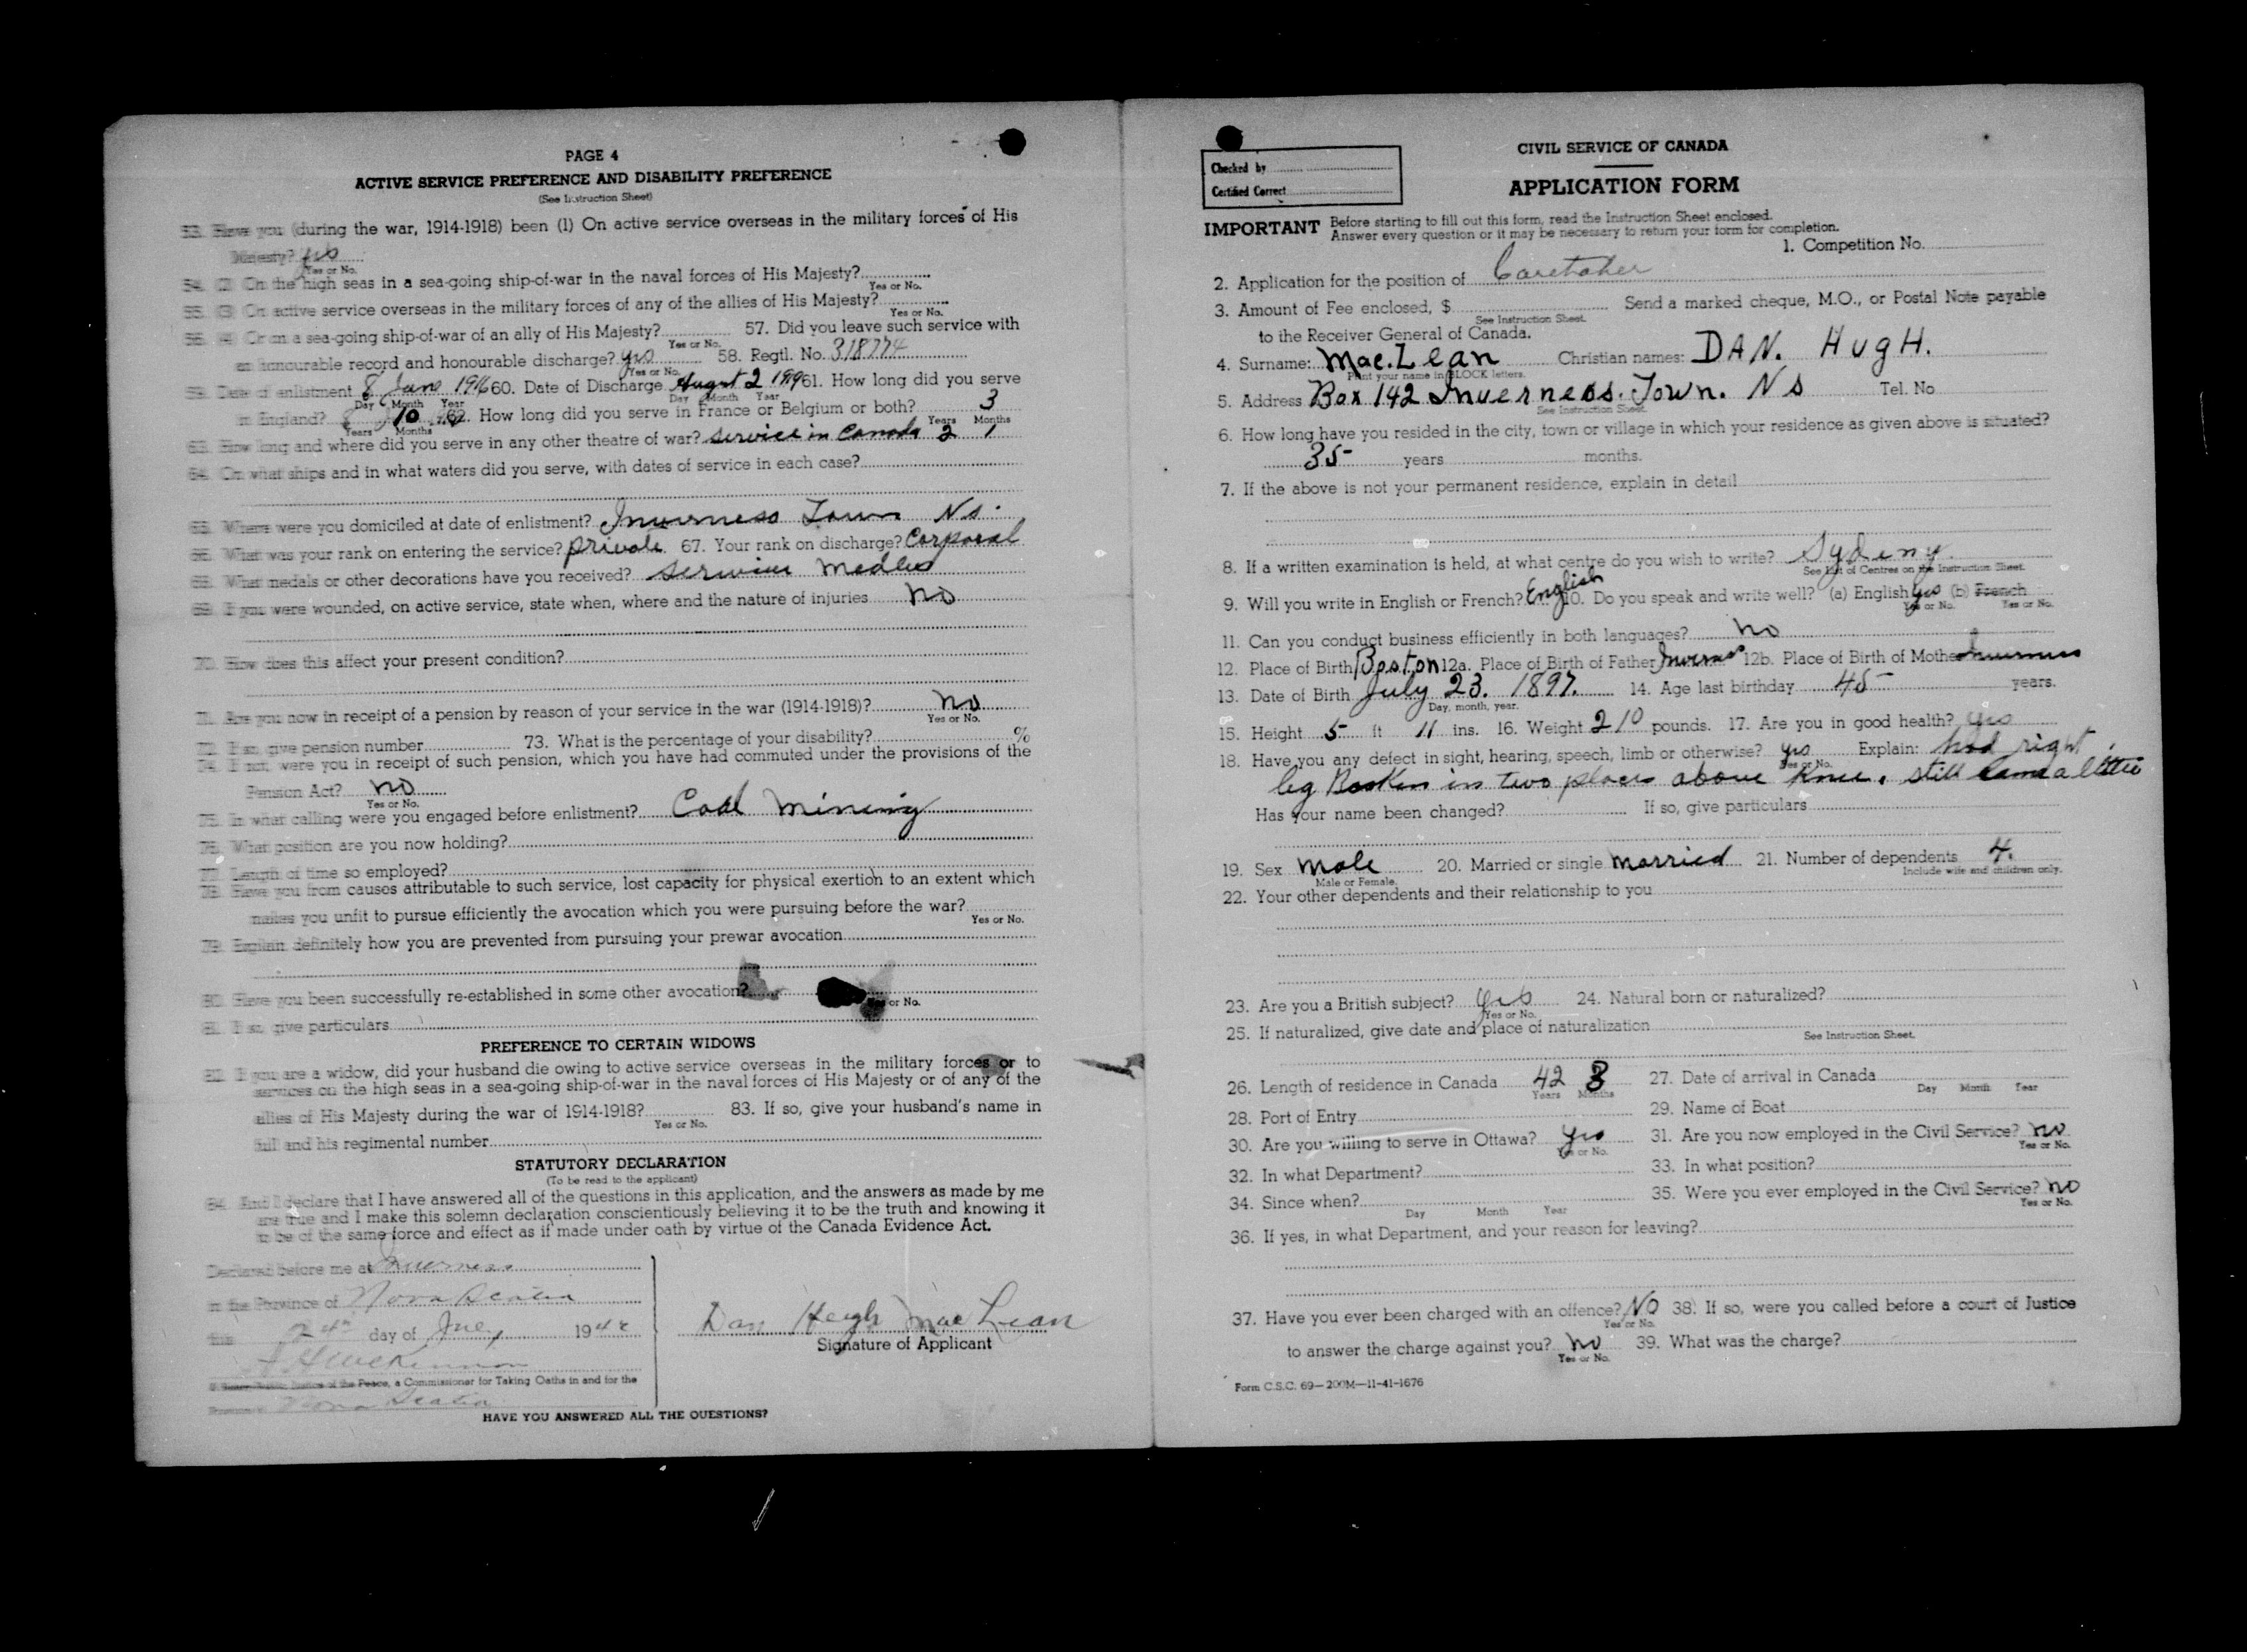 PAGE 4
ACTIVE SERVICE PREFERENCE AND DISABILITY PREFERENCE
(See Instruction Sheet)
53. Have you (during the war, 1914-1918) been (1) On active service overseas in the military forces of His
Majesty? yes
Yes or No.
54. (2) On the high seas in a sea-going ship-of-war in the naval forces of His Majesty?
Yes or No.
55. (3) On active service overseas in the military forces of any of the allies of His Majesty?
Yes or No.
56. (4) Or on a sea-going ship-of-war of an ally of His Majesty? 57. Did you leave such service with
Yes or No.
an honourable record and honourable discharge? yes 58. Regtl. No. 318774
Yes or No.
59. Date of enlistment 8 June 1916 60. Date of Discharge August 2 1919 61. How long did you serve
Day Month Year Day Month Year
in England? 10 62. How long did you serve in France or Belgium or both? 3
Years Months Years Months
63. How long and where did you serve in any other theatre of war? service in Canada 2 1
64. On what ships and in what waters did you serve, with dates of service in each case?
65. Where were you domiciled at date of enlistment? Inverness Town Ns.
66. What was your rank on entering the service? private 67. Your rank on discharge? Corporal
68. What medals or other decorations have you received? service medles
69. If you were wounded, on active service, state when, where and the nature of injuries no
70. How does this affect your present condition?
71. Are you now in receipt of a pension by reason of your service in the war (1914-1918)? no
Yes or No.
72. If so, give pension number 73. What is the percentage of your disability? %
74. If not, were you in receipt of such pension, which you have had commuted under the provisions of the
Pension Act? no
Yes or No.
75. In what calling were you engaged before enlistment? Coal mining
76. What position are you now holding?
77. Length of time so employed?
78. Have you from causes attributable to such service, lost capacity for physical exertion to an extent which
makes you unfit to pursue efficiently the avocation which you were pursuing before the war?
Yes or No.
79. Explain definitely how you are prevented from pursuing your prewar avocation
80. Have you been successfully re-established in some other avocation?
Yes or No.
81. If so, give particulars
PREFERENCE TO CERTAIN WIDOWS
82. If you are a widow, did your husband die owing to active service overseas in the military forces or to
services on the high seas in a sea-going ship-of-war in the naval forces of His Majesty or of any of the
allies of His Majesty during the war of 1914-1918? 83. If so, give your husband's name in
Yes or No.
full and his regimental number
STATUTORY DECLARATION
(To be read to the applicant)
84. And I declare that I have answered all of the questions in this application, and the answers as made by me
are true and I make this solemn declaration conscientiously believing it to be the truth and knowing it
to be of the same force and effect as if made under oath by virtue of the Canada Evidence Act.
Declared before me at Inverness
in the Province of Nova Scotia
this 24th day of June, 194
Dan Hugh MacLean
Signature of Applicant
Justice of the Peace, a Commissioner for Taking Oaths in and for the
Province Nova Scotia
HAVE YOU ANSWERED ALL THE QUESTIONS?
Checked by
Certified Correct
CIVIL SERVICE OF CANADA
APPLICATION FORM
IMPORTANT Before starting to fill out this form, read the Instruction Sheet enclosed.
Answer every question or it may be necessary to return your form for completion.
1. Competition No.
2. Application for the position of Caretaker
3. Amount of Fee enclosed, $ Send a marked cheque, M.O., or Postal Note payable
See Instruction Sheet.
to the Receiver General of Canada.
4. Surname: Mac.Lean Christian names: DAN. HugH.
Print your name in BLOCK letters.
5. Address Box 142 Inverness. Town. Ns Tel. No
See Instruction Sheet.
6. How long have you resided in the city, town or village in which your residence as given above is situated?
35 years months.
7. If the above is not your permanent residence, explain in detail
8. If a written examination is held, at what centre do you wish to write? Sydeny.
See List of Centres on the Instruction Sheet.
9. Will you write in English or French? English 10. Do you speak and write well? (a) English yes (b) French
Yes or No. Yes or No.
11. Can you conduct business efficiently in both languages? no
12. Place of Birth Boston 12a. Place of Birth of Father Inverness 12b. Place of Birth of Mother Inverness
13. Date of Birth July 23. 1897. 14. Age last birthday 45 years.
Day, month, year.
15. Height 5 ft 11 ins. 16. Weight 210 pounds. 17. Are you in good health? yes
18. Have you any defect in sight, hearing, speech, limb or otherwise? yes Explain: had right
Yes or No.
leg Brokin in two places above knee. still lame a little
Has your name been changed? If so, give particulars
19. Sex male 20. Married or single married 21. Number of dependents 4.
Male or Female. Include wife and children only.
22. Your other dependents and their relationship to you
23. Are you a British subject? yes 24. Natural born or naturalized?
Yes or No.
25. If naturalized, give date and place of naturalization
See Instruction Sheet.
26. Length of residence in Canada 42 3 27. Date of arrival in Canada
Years Months Day Month Year
28. Port of Entry 29. Name of Boat
30. Are you willing to serve in Ottawa? yes 31. Are you now employed in the Civil Service? no
Yes or No. Yes or No.
32. In what Department? 33. In what position?
34. Since when? 35. Were you ever employed in the Civil Service? no
Day Month Year Yes or No.
36. If yes, in what Department, and your reason for leaving?
37. Have you ever been charged with an offence? No 38. If so, were you called before a court of Justice
Yes or No.
to answer the charge against you? no 39. What was the charge?
Yes or No.
Form C.S.C. 69—200M—11-41-1676